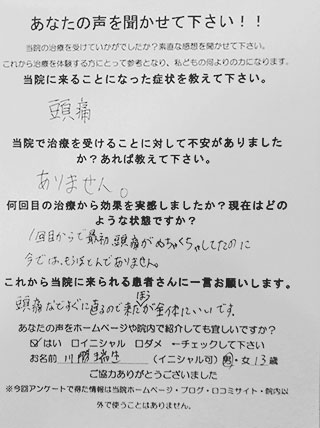 あなたの声を聞かせて下さい！！
当院の治療を受けていかがでしたか？素直な感想を聞かせて下さい。
これから治療を体験する方にとって参考となり、私どもの何よりの力になります。
当院に来ることになった症状を教えて下さい。
頭痛
当院で治療を受けることに対して不安がありました
か？あれば教えて下さい。
ありません。
何回目の治療から効果を実感しましたか？現在はどの
ような状態ですか？
1回目からで最初頭痛がめちゃくちゃしてたのに
今では、もうほとんどありません。
これから当院に来られる患者さんに一言お願いします。
頭痛などすぐに直るので来たほうが全体にいいです。
あなたの声をホームページや院内で紹介しても宜しいですか？
☑はい ロイニシャル ロダメ ←チェックして下さい
お名前 川勝瑞生 （イニシャル可） 男・女 13歳
ご協力ありがとうございました
※今回アンケートで得た情報は当院ホームページ・ブログ・口コミサイト・院内以
外で使うことはありません。